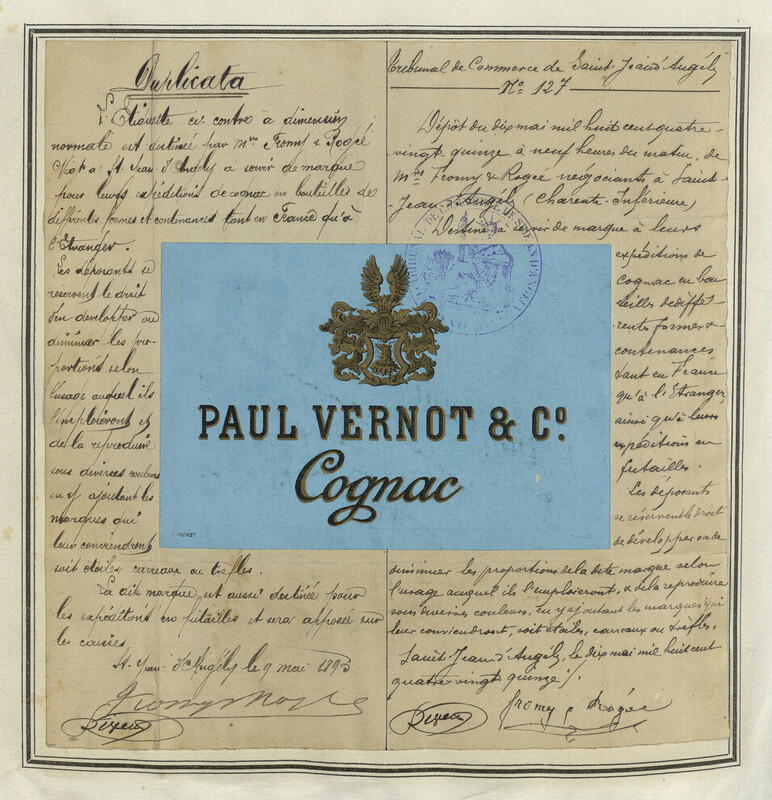 Duplicata
L'Etiquette ci-contre à dimension
normale est destinée par Mrs Fromy & Rogée
Négts à St Jean-d'Angély à servir de marque
pour leurs expéditions de cognac en bouteilles de
différentes formes et contenances tant en France qu'à
l'Etranger.
Les déposants se
réservent le droit
d'en développer ou
diminuer les pro-
portions selon
l'usage auquel ils
l'emploieront et
de la reproduire
sous diverses couleurs
en y ajoutant les
marques qui
leur conviendront
soit étoiles carreaux ou trèfles.
La dite marque est aussi destinée pour
les expéditions en futailles et sera apposée sur
les caisses.
St Jean-d'Angély le 9 mai 1895
Fromy Rogée
Tribunal de Commerce de Saint-Jean d'Angély
No 127
Dépôt du dix mai mil huit cent quatre-
vingt quinze à neuf heures du matin, de
Mrs Fromy & Rogée négociants à Saint-
Jean d'Angély (Charente-Inférieure)
Destiné à servir de marque à leurs
expéditions de
cognac en bou-
teilles de diffé-
rentes formes &
contenances
tant en France
qu'à l'Etranger,
ainsi qu'à leurs
expéditions en
futailles.
Les déposants
se réservent le droit
de développer ou de
diminuer les proportions de la dite marque selon
l'usage auquel ils l'emploieront, & de la reproduire
sous diverses couleurs, en y ajoutant les marques qui
leur conviendront, soit étoiles, carreaux ou trèfles.
Saint-Jean d'Angély, le dix mai mil huit cent
quatre-vingt quinze.
Fromy & Rogée
PAUL VERNOT & Co.
Cognac